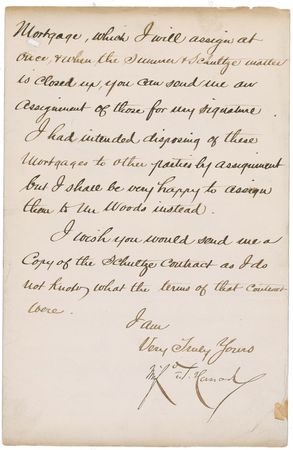 Mortgage, which I will assign at
once, & when the Sumner & Schultze matter
is closed up, you can send me an
assignment of those for my signature.
I had intended disposing of these
Mortgages to other parties by assignment
but I shall be very happy to assign
them to Mr Woods instead.
I wish you would send me a
Copy of the Schultze Contract as I do
not know what the terms of that contract
were.
I am
Very Truly Yours